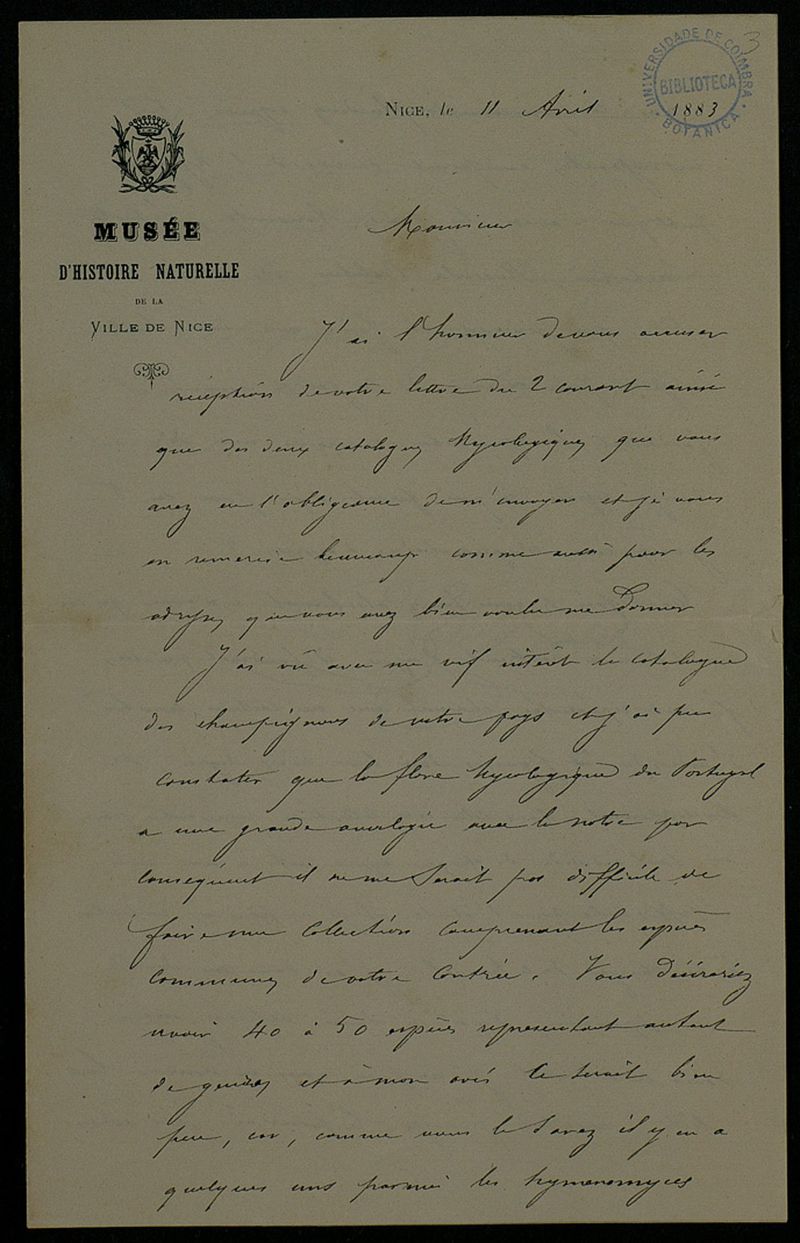 3
UNIVERSIDADE DE COIMBRA
BIBLIOTECA
BOTANICA
NICE, le 11 Avril 1883
MUSÉE
D'HISTOIRE NATURELLE
DE LA
VILLE DE NICE
Monsieur
J'ai l'honneur de vous accuser
réception de votre lettre du 2 courant ainsi
que des deux catalogues Mycologiques que vous
avez eu l'obligeance de m'envoyer et je vous
en remercie beaucoup comme aussi pour les
adresses que vous avez bien voulu me donner
J'ai vu avec un vif intérêt le catalogue
des champignons de votre pays et j'ai pu
constater que la flore Mycologique du Portugal
a une grande analogie avec la notre par
conséquent il ne me serait pas difficile de
faire une collection comprenant les espèces
communes de votre contrée. Vous désireriez
avoir 40 à 50 espèces représentant autant
de genres et à mon avis ce serait bien
peu, car, comme vous le savez il y en a
quelques uns parmi les hymenomyces